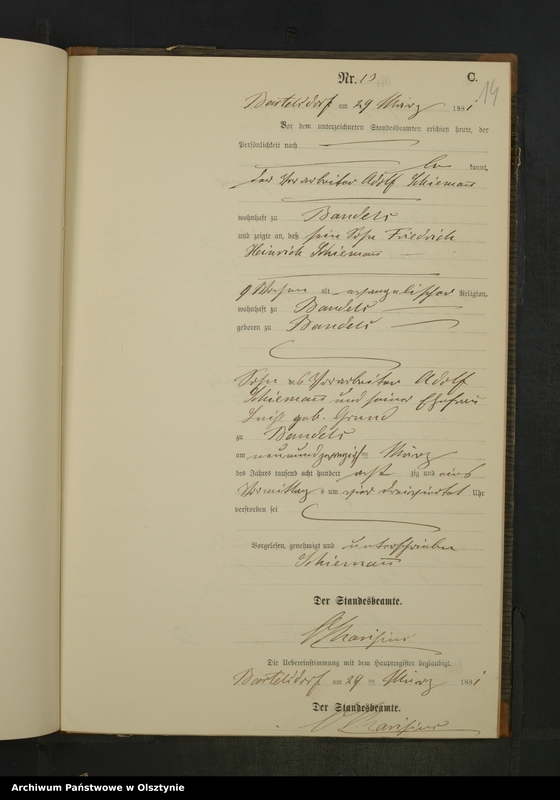 Nr. 13
C.
14
Bartelsdorf am 29 März 1881
Vor dem unterzeichneten Standesbeamten erschien heute, der
Persönlichkeit nach
be kannt,
der Vorarbeiter Adolf Schiemann
wohnhaft zu Bandels
und zeigte an, daß sein Sohn Friedrich
Heinrich Schiemann
9 Wochen alt evangelischer Religion,
wohnhaft zu Bandels
geboren zu Bandels
Sohn des Vorarbeiter Adolf
Schiemann und seiner Ehefrau
geb. Grund
zu Bandels
am neunundzwanzigsten März
des Jahres tausend acht hundert acht zig und eins
Vormittag s um vier dreiviertel Uhr
verstorben sei
Vorgelesen, genehmigt und unterschrieben
Schiemann
Der Standesbeamte.
Die Uebereinstimmung mit dem Hauptregister beglaubigt.
Bartelsdorf am 29 ten März 1881
Der Standesbeamte.
Archiwum Państwowe w Olsztynie